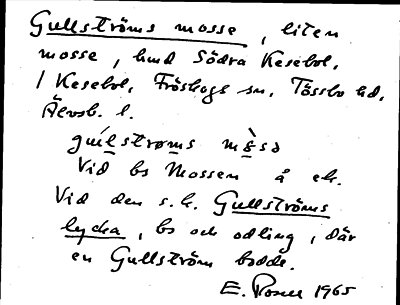 Gullströms mosse, liten
mosse, hmd Södra Kesebol,
1 Kesebol, Fröskogs sn, Tössbo hd,
Älvsb. l.
gu̇lstrøms mɔ̀sa
Vid bs Mossen å ek.
Vid den s.k. Gullströms
lycka, bs och odling, där
en Gullström bodde.
E. Rosell 1965